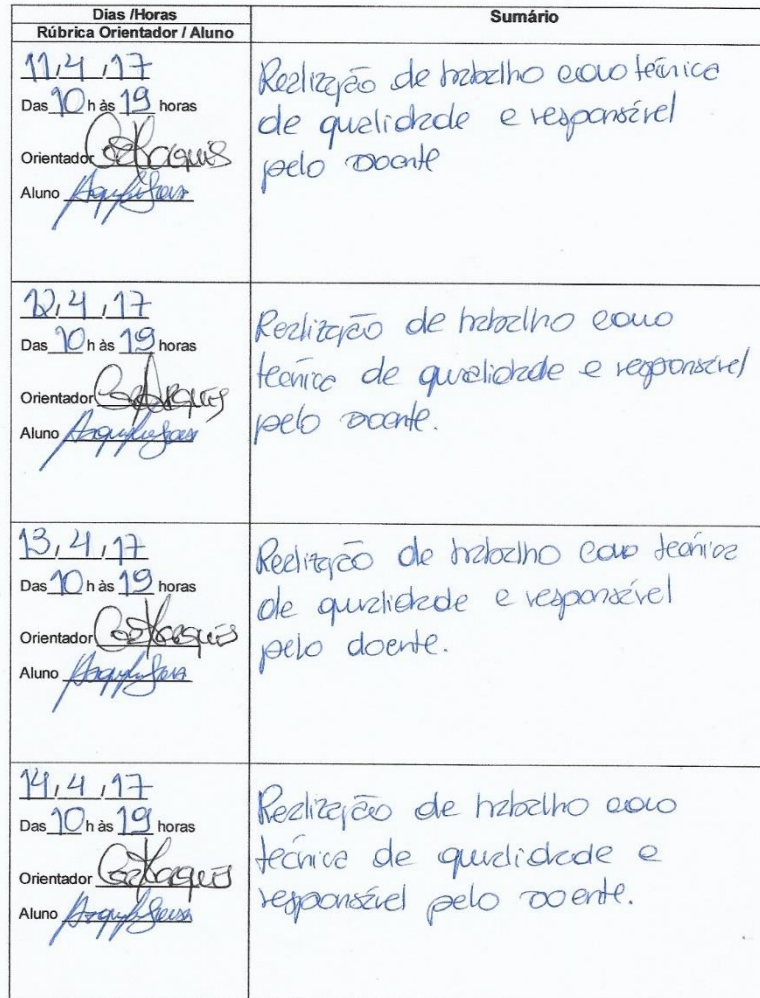 Dias /Horas
Rúbrica Orientador / Aluno
Sumário
11,4,17
Das 10 h às 19 horas
Orientador
Aluno
Realização de trabalho como técnica
de qualidade e responsável
pelo doente
12,4,17
Das 10 h às 19 horas
Orientador
Aluno
Realização de trabalho como
técnica de qualidade e responsável
pelo doente.
13,4,17
Das 10 h às 19 horas
Orientador
Aluno
Realização de trabalho como técnica
de qualidade e responsável
pelo doente.
14,4,17
Das 10 h às 19 horas
Orientador
Aluno
Realização de trabalho como
técnica de qualidade e
responsável pelo doente.